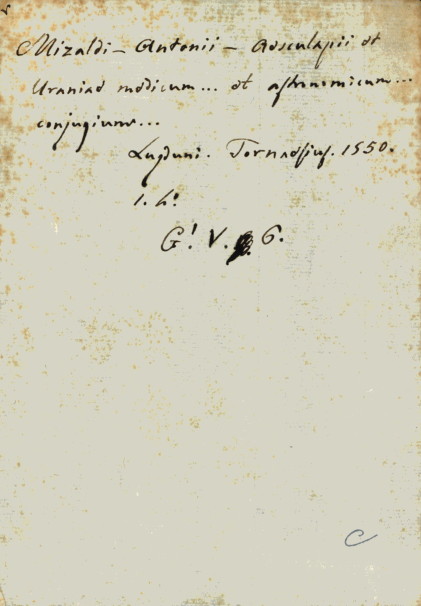 Mizaldi - Antonii - Aesculapii et
Uraniae medicum... et astronomicum...
conjugium...
Lugduni. Tornaesius. 1550.
1. 4º
G! V. 6.
C